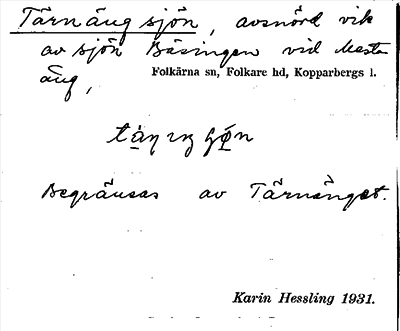 Tärnängsjön, avsnörd vik
av sjön Bäsingen vid Mästa
äng,
Folkärna sn, Folkare hd, Kopparbergs l.
Begränsas av Tärnänget.
Karin Hessling 1931.